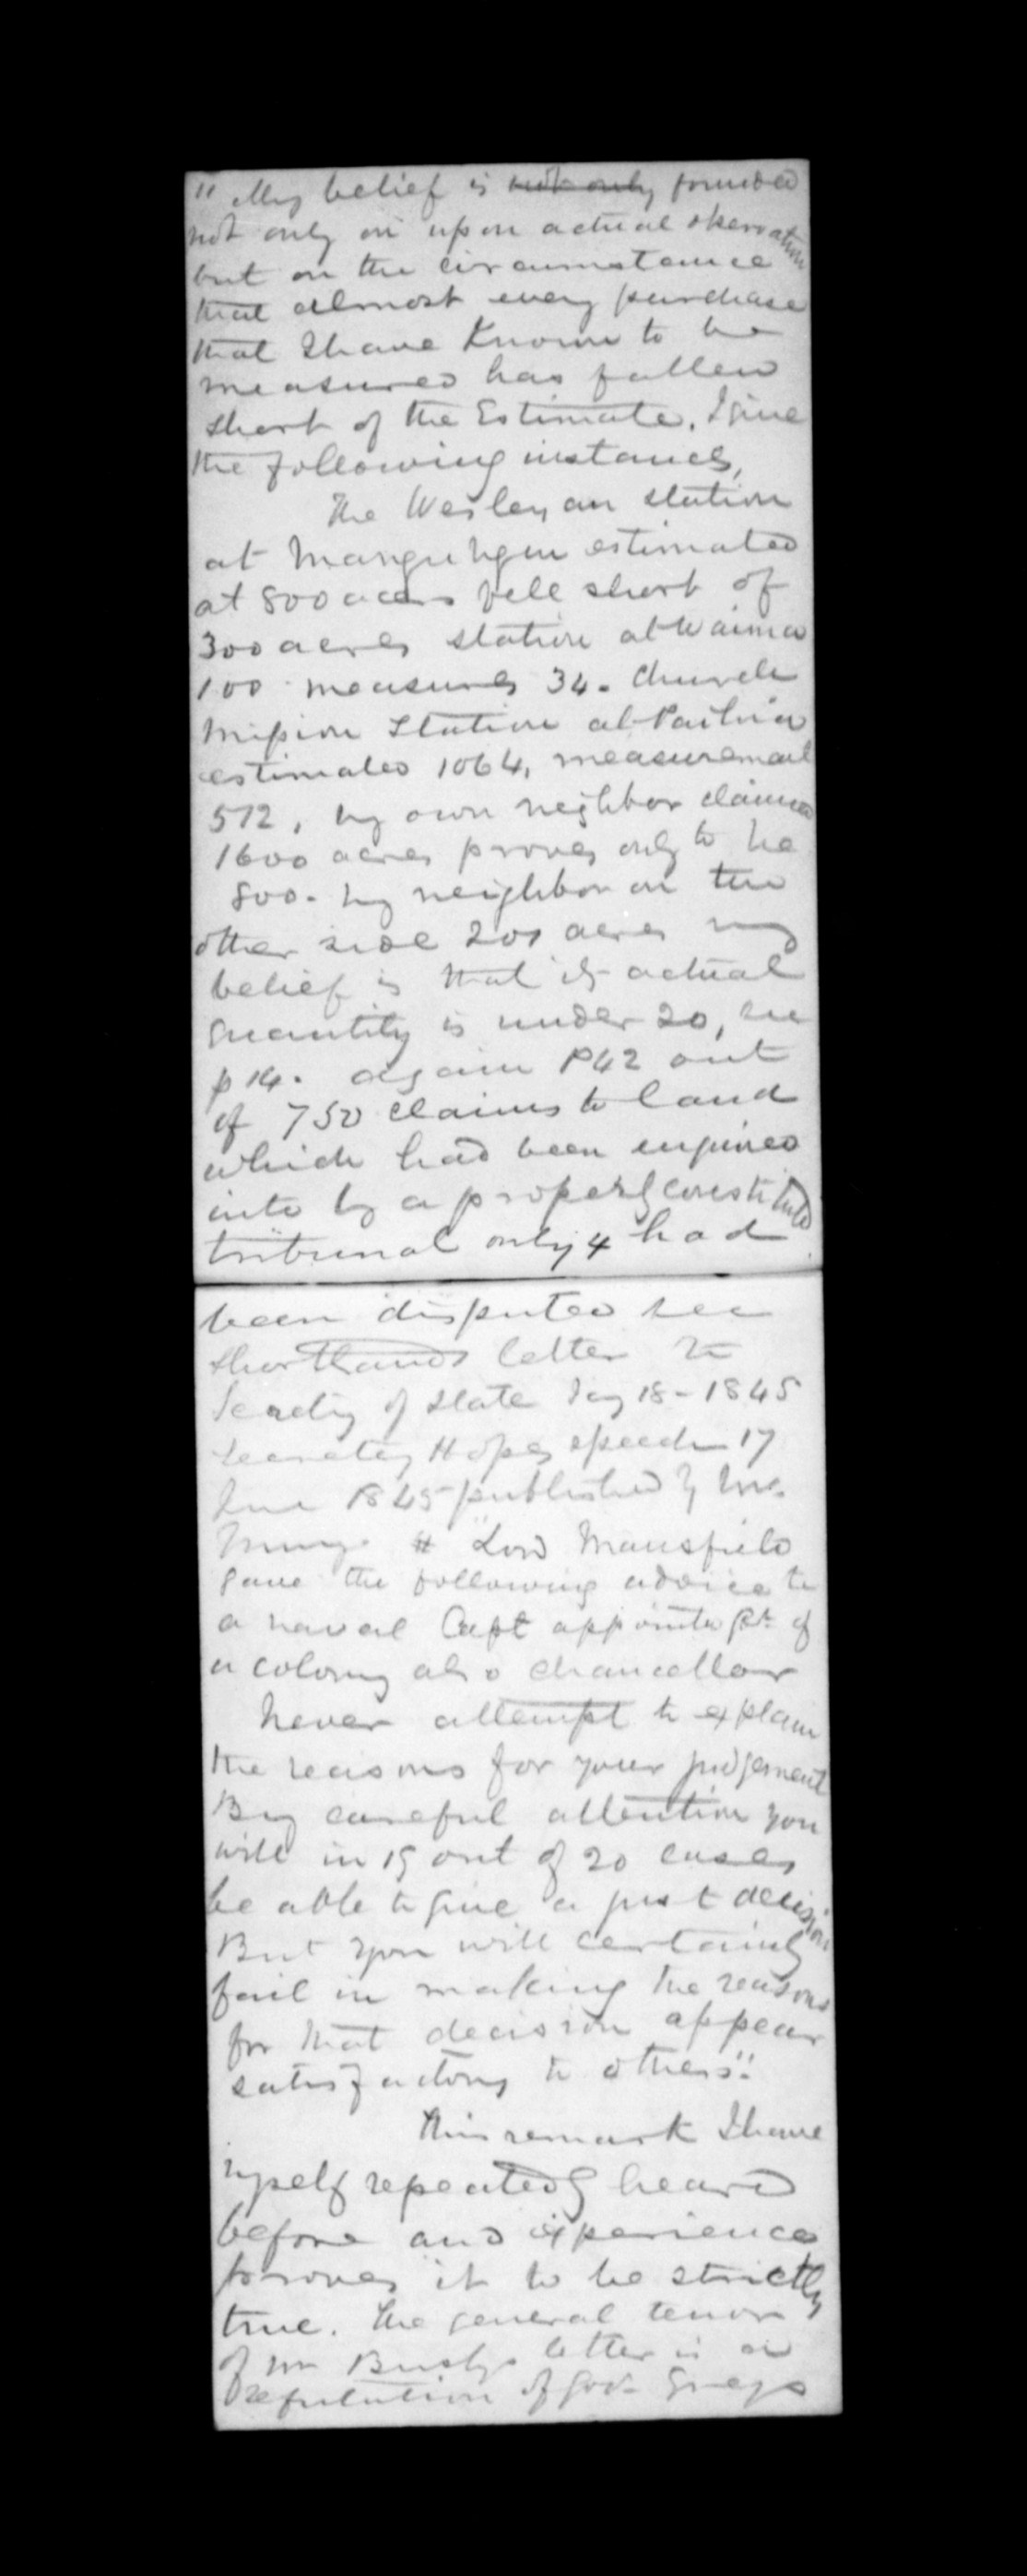 " My belief is not only founded
not only on upon actual observation
but on the circumstance
that almost every purchase
that I have Known to be
measured has fallen
short of the Estimate. I give
the following instances,
The Wesleyan station
at Mangungu estimated
at 800 acres fell short of
300 acres station at Waima
100 measures 34. Church
Mission Station at Paihia
estimated 1064, measurement
512, my own neighbor claimed
1600 acres proves only to be
800. my neighbor on the
other side 200 acres my
belief is that its actual
quantity is under 20, see
p 14. again P42 out
of 750 claims to land
which had been enquired
into by a properly constituted
tribunal only 4 had
been disputed see
Shortlands letter to
of State 18 - 1845
Hopes speech 17
June 1845 published by
# Lord Mansfield
gave the following advice to
a naval Capt appointed of
a colony also chancellor
Never attempt to explain
the reasons for your judgement
By careful attention you
will in 19 out of 20 cases
be able to give a just decision
But you will certainly
fail in making the reasons
for that decision appear
satisfactory to others".
This remark I have
myself repeatedly heard
before and experience
proves it to be strictly
true. The general tenor
of Mr Busbys letter is a
refutation of Gov. Greys